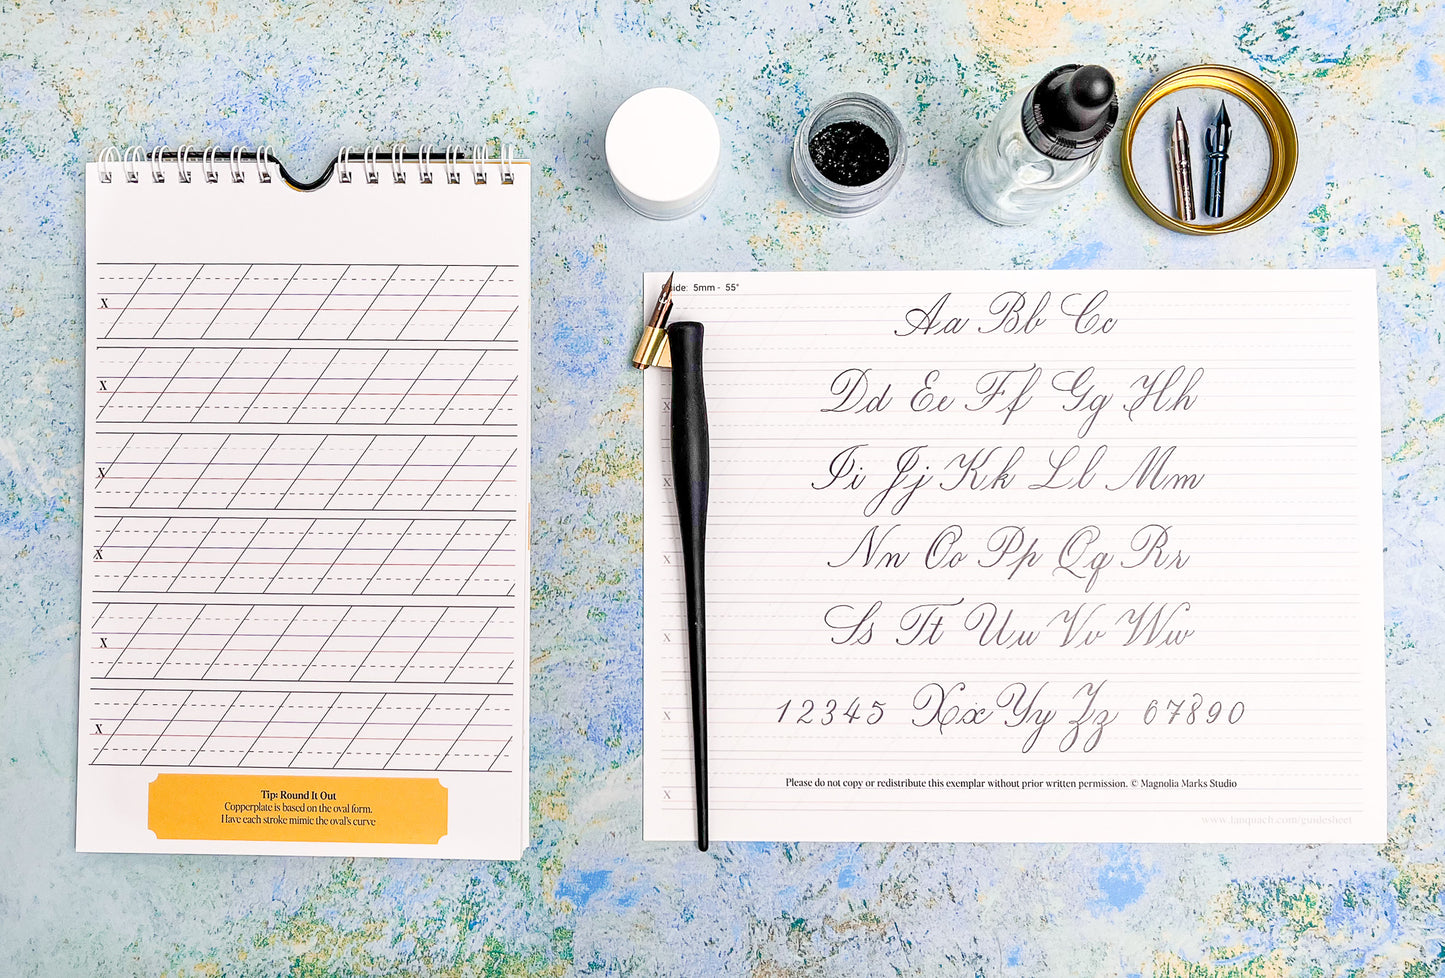 x
x
x
x
x
x
Tip: Round It Out
Copperplate is based on the oval form.
Have each stroke mimic the oval's curve
Guide: 5mm - 55°
Aa Bb Cc
x
Dd Ee Ff Gg Hh
x
Ii Jj Kk Ll Mm
x
Nn Oo Pp Qq Rr
x
Ss Tt Uu Vv Ww
x
12345 Xx Yy Zz 67890
x
Please do not copy or redistribute this exemplar without prior written permission. © Magnolia Marks Studio
www.lauquach.com/guidesheet